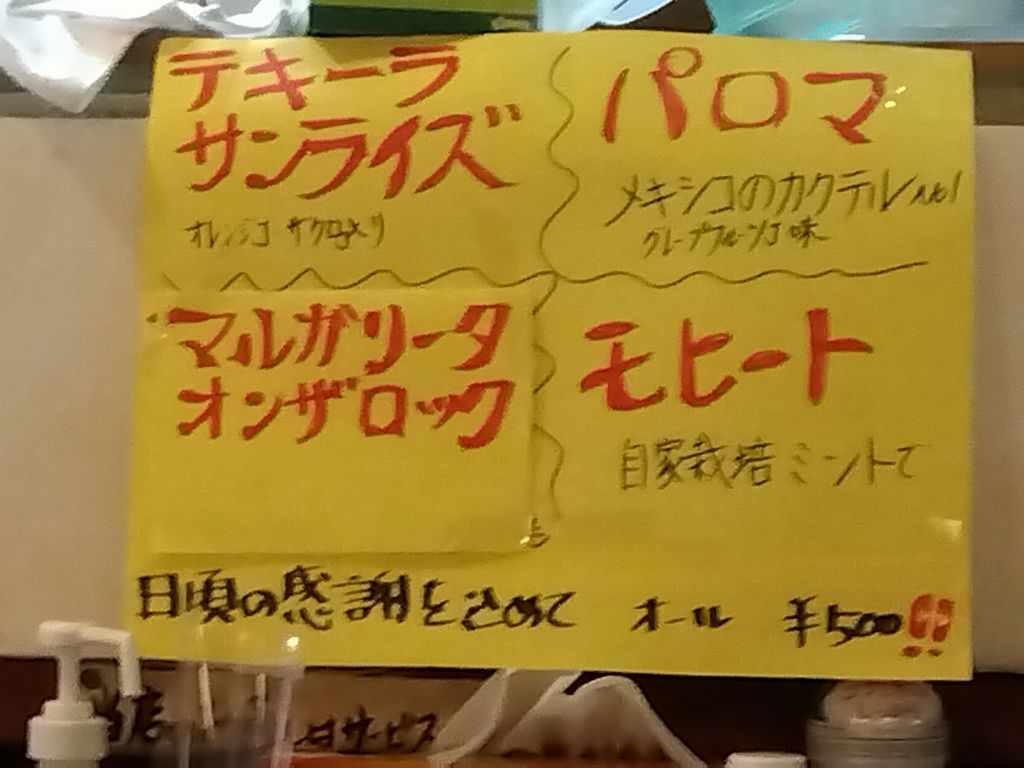 テキーラ
サンライズ
オレンジ ザクロ入り
パロマ
メキシコのカクテル No1
グレープフルーツ味
マルガリータ
オンザロック
モヒート
自家栽培ミントで
日頃の感謝を込めて オール ¥500!!
当店
サービス